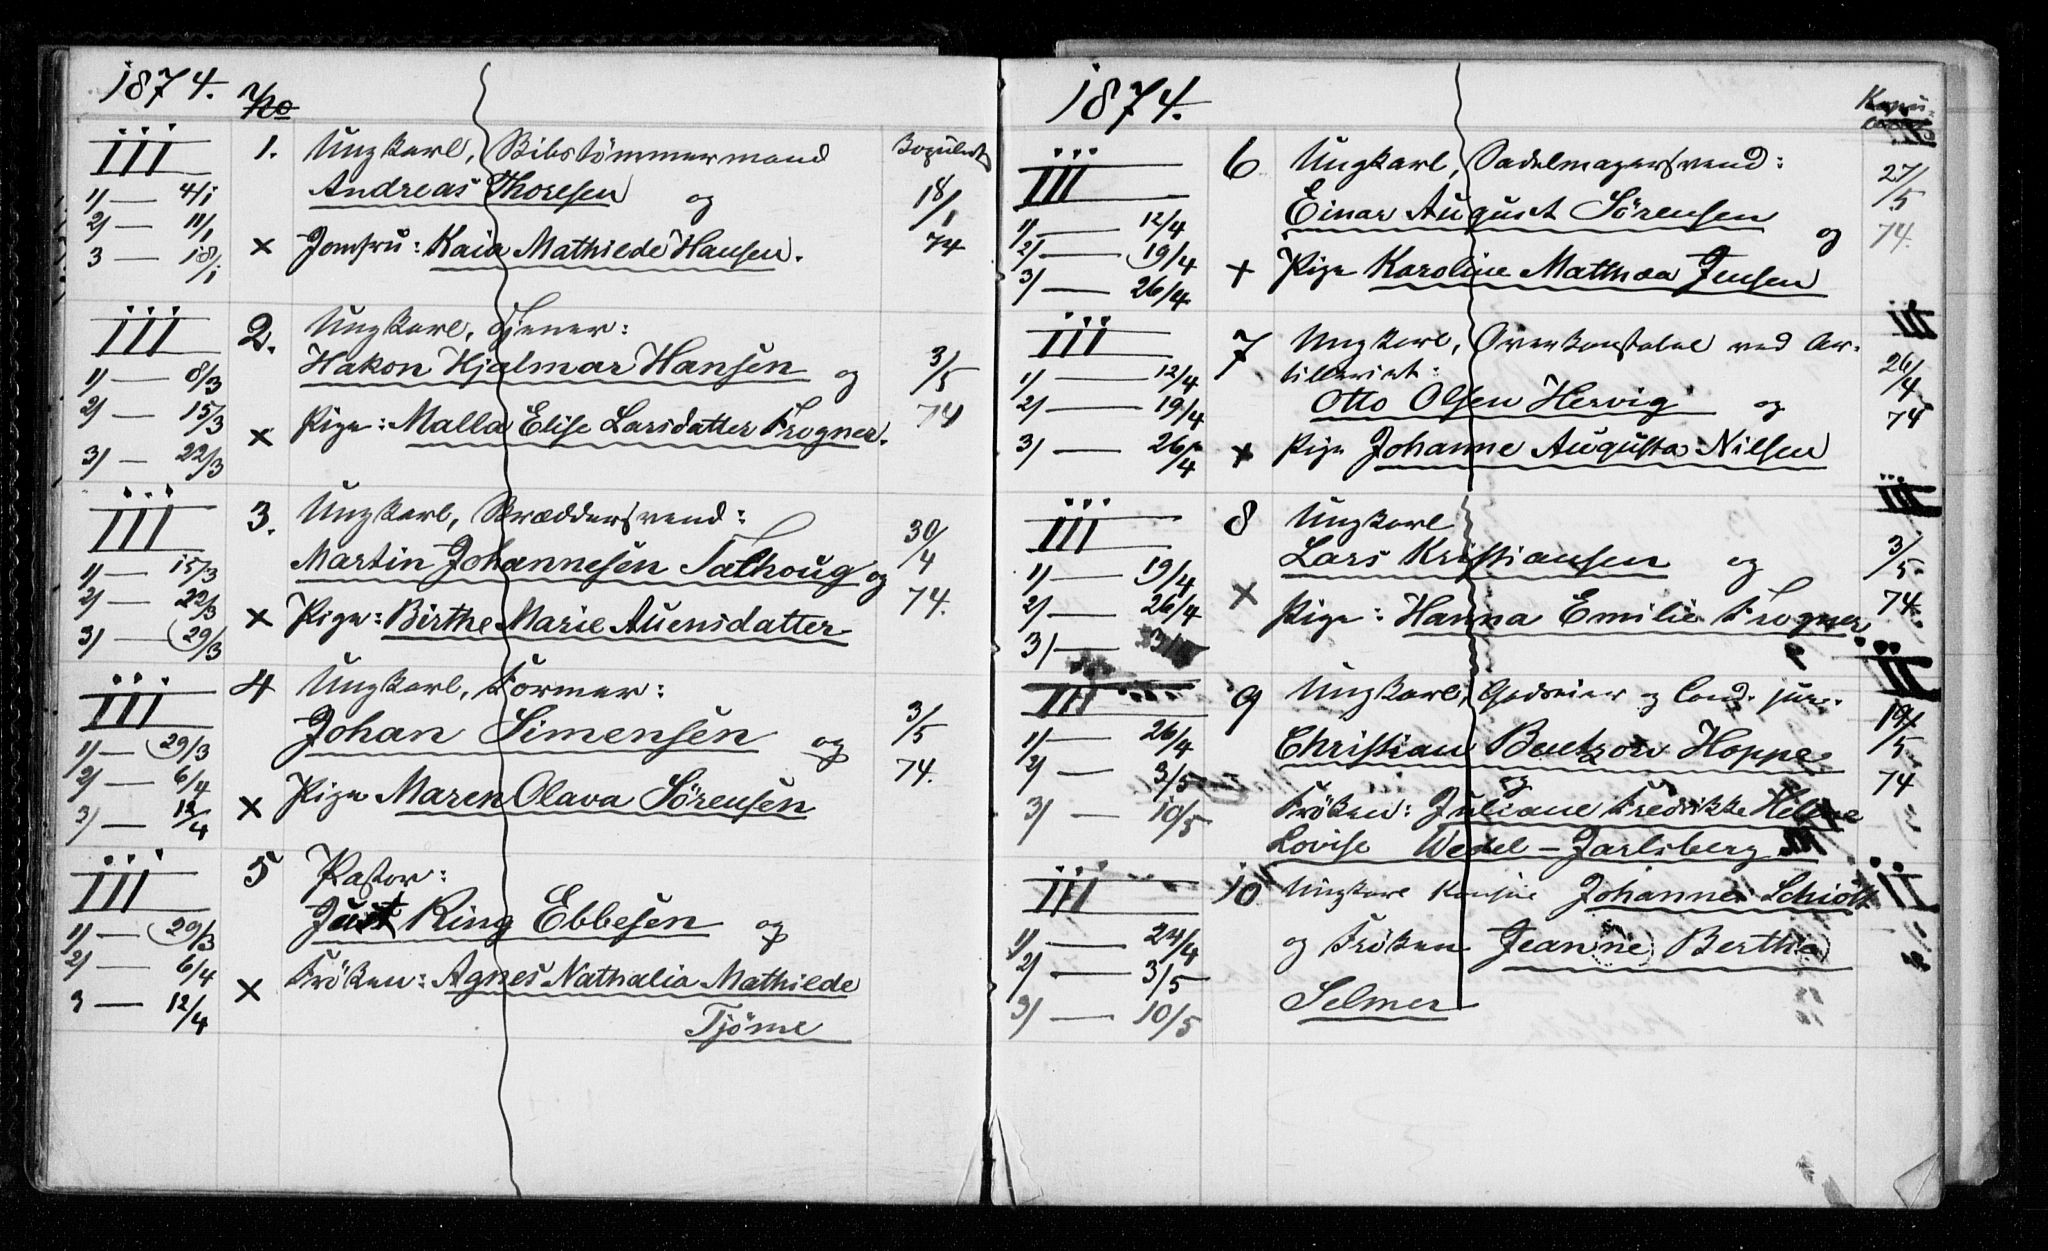 1874. No
III 1. Ungkarl, Skibstömmermand Kopuleret
1) — 4/1 Andreas Thoresen og 18/1
2) — 11/1
3 — 18/1 × Jomfru: Kaia Mathilde Hansen. 74
III 2. Ungkarl, Tjener:
1) — 8/3 Hakon Hjalmar Hansen og 3/5
2) — 15/3
3) — 22/3 × Pige: Malla Elise Larsdatter Frogner. 74
III 3. Ungkarl, Skræddersvend:
1) — 15/3 Martin Johannesen Talhoug og 30/4
2) — 22/3
3) — 29/3 × Pige: Birthe Marie Auensdatter 74.
III 4 Ungkarl, Former:
1) — 29/3 Johan Simensen og 3/5
2) — 6/4
3) — 12/4 × Pige Maren Olava Sörensen 74.
III 5 Pastor:
1) — 29/3 Just Ring Ebbesen og
2) — 6/4
3 — 12/4 × Fröken: Agnes Nathalia Mathilde
Tjöme
1874.
III 6 Ungkarl, Sadelmagersvend: 27/5
1) — 12/4 Einar August Sörensen og 74.
2) — 19/4
3) — 26/4 + Pige Karoline Mathea Jensen
III 7 Ungkarl, Overkonstabel ved Ar- III
1) — 12/4 tilleriet: 26/4
2) — 19/4 Otto Olsen Hervig og 74
3) — 26/4 × Pige Johanne Augusta Nilsen
III 8 Ungkarl III
1) — 19/4 Lars Kristiansen og 3/5
2) — 26/4 × Pige: Hanna Emilie Frogner 74.
3) — 3/5
III 9 Ungkarl, Godseier og Cand. jur. III
1) — 26/4 Christian Bentzon Hoppe 19/5
2) — 3/5 og 74
3) — 10/5 Fröken: Juliane Fredrikke Helene
Lovise Wedel-Jarlsberg
III 10 Ungkarl Johannes Schiött III
1) — 24/4 og Fröken Jeanne Berthea
2) — 3/5
3) — 10/5 Selmer